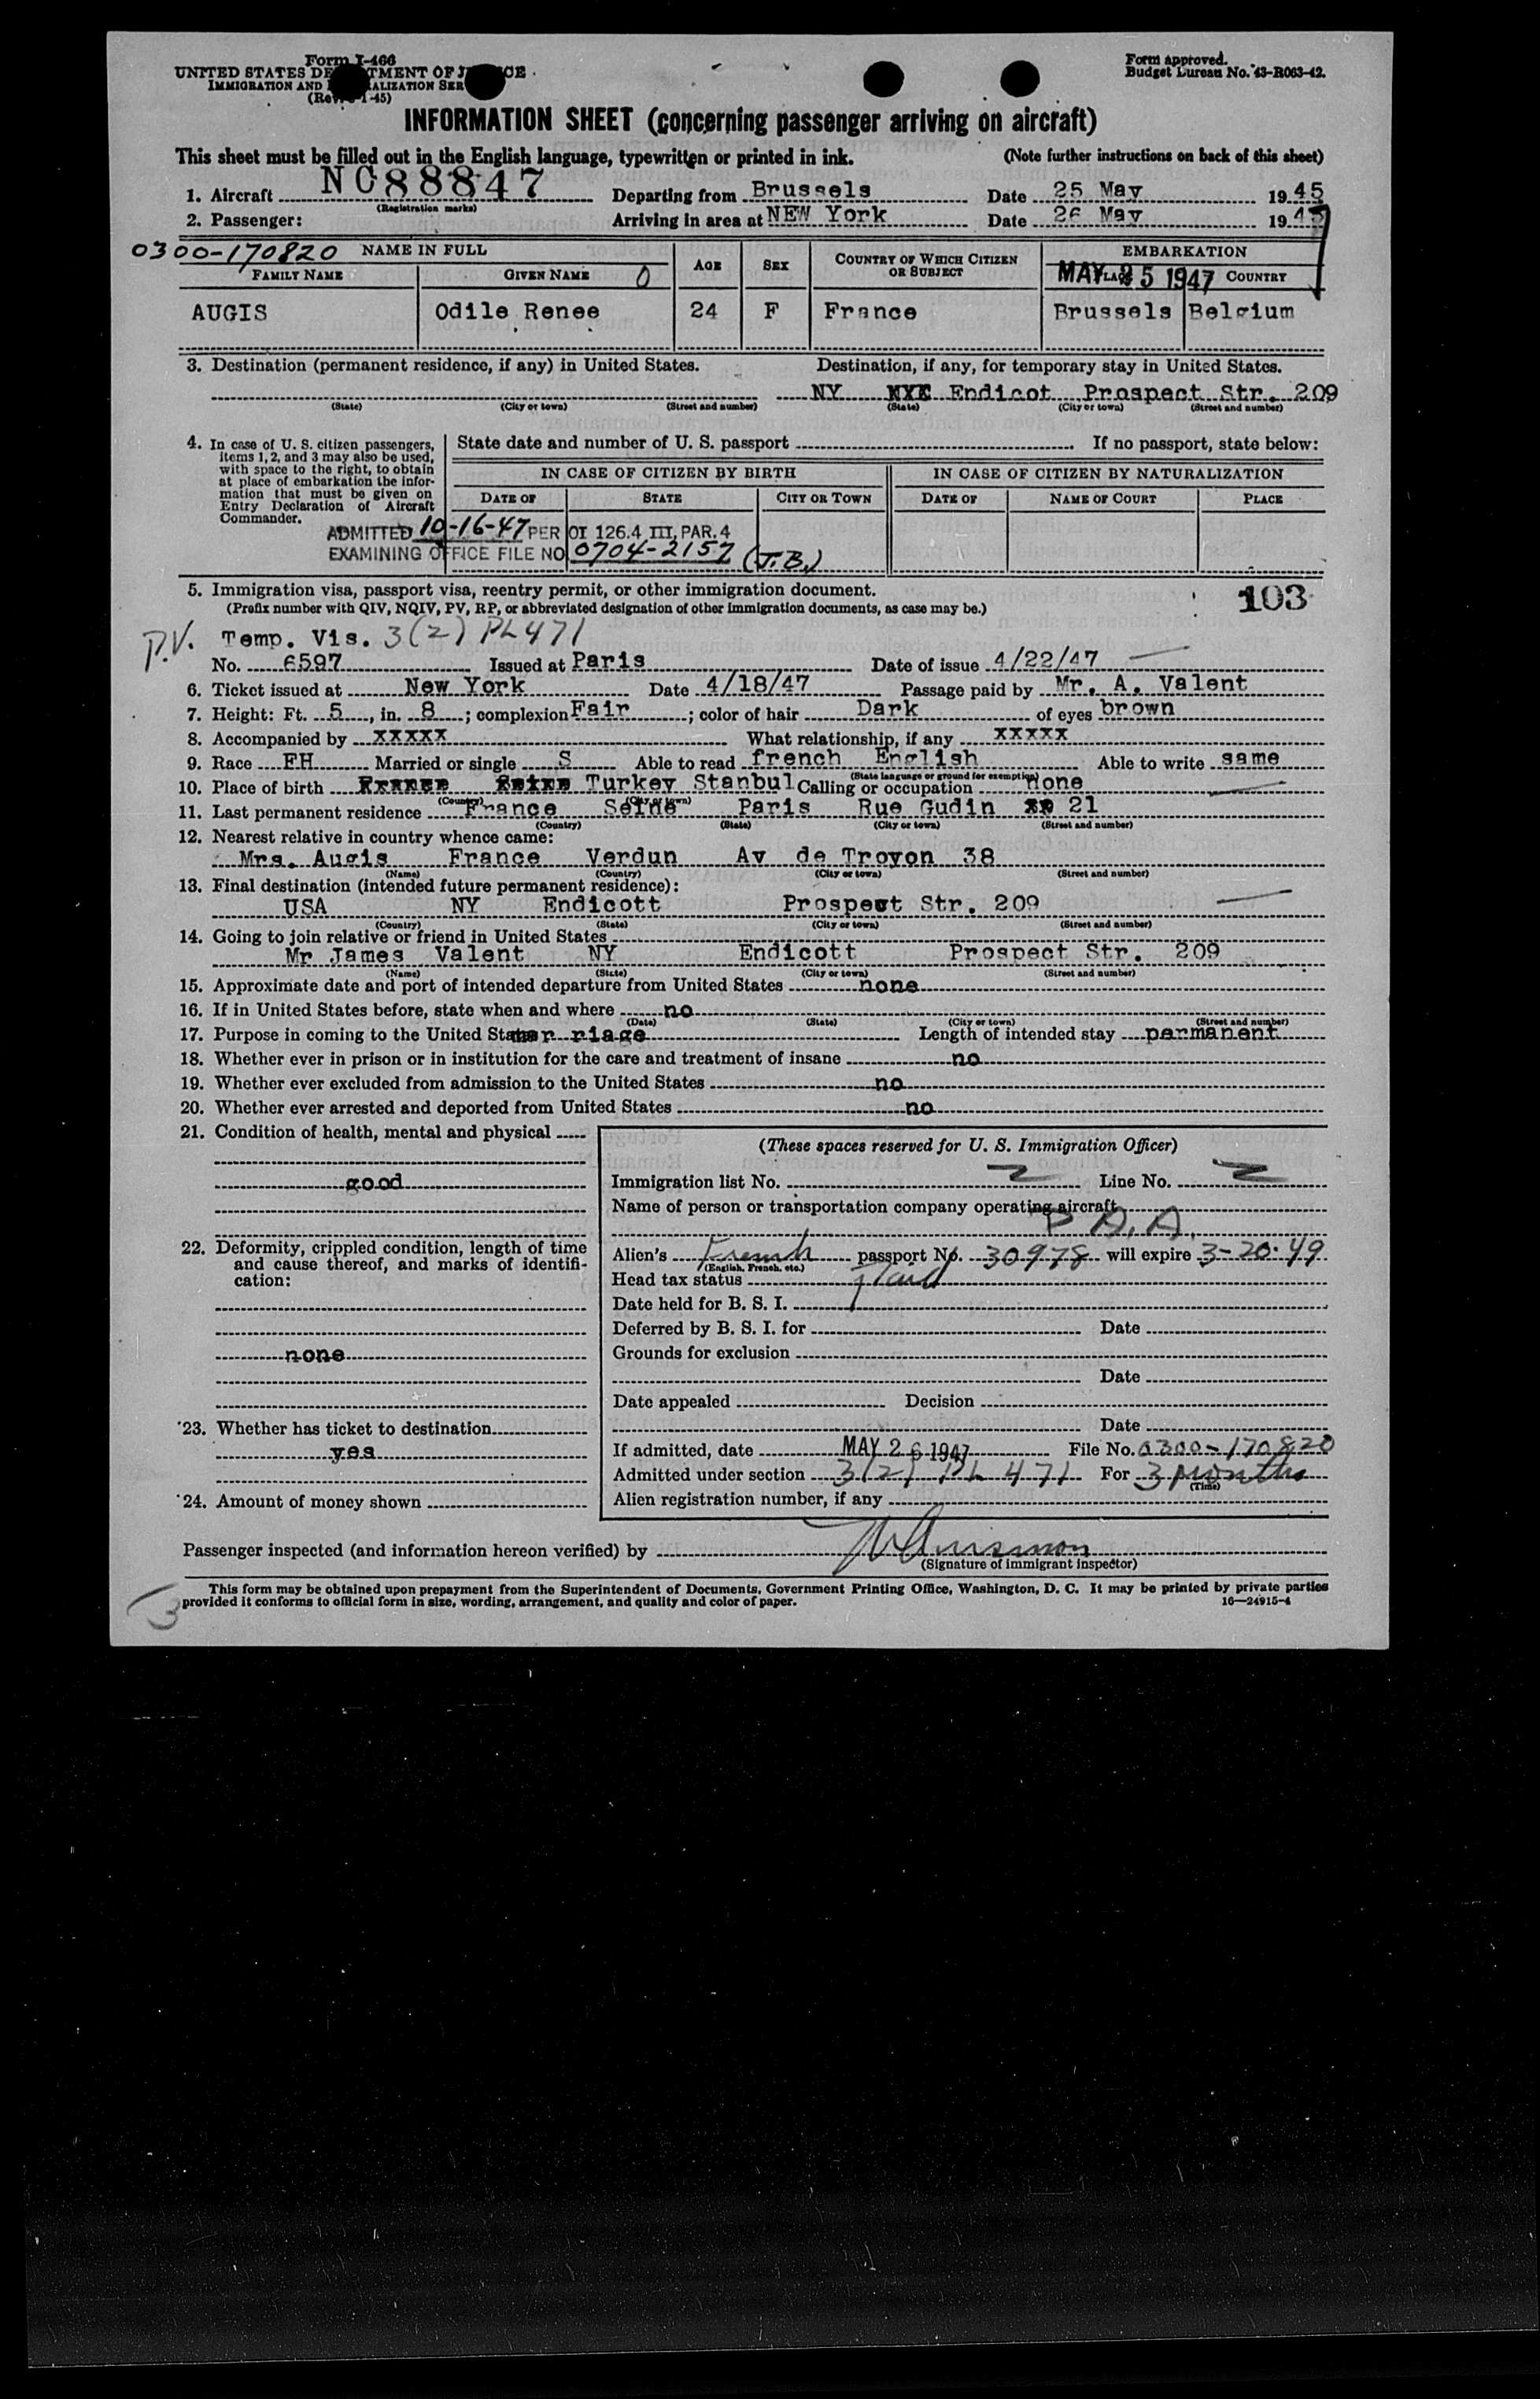 Form I-466
UNITED STATES DE TMENT OF J CE
IMMIGRATION AND ALIZATION SER
(Rev. 1-45)
Form approved.
Budget Bureau No. 43-R063-42.
INFORMATION SHEET (concerning passenger arriving on aircraft)
This sheet must be filled out in the English language, typewritten or printed in ink. (Note further instructions on back of this sheet)
1. Aircraft NC88847 Departing from Brussels Date 25 May 1945
(Registration marks)
2. Passenger: Arriving in area at NEW York Date 26 May 194
0300-170820 NAME IN FULL AGE SEX COUNTRY OF WHICH CITIZEN OR SUBJECT EMBARKATION
FAMILY NAME GIVEN NAME PLACE MAY 25 1947 COUNTRY
AUGIS Odile Renee 24 F France Brussels Belgium
3. Destination (permanent residence, if any) in United States. Destination, if any, for temporary stay in United States.
NY Endicot Prospect Str. 209
(State) (City or town) (Street and number) (State) (City or town) (Street and number)
4. In case of U. S. citizen passengers, items 1, 2, and 3 may also be used, with space to the right, to obtain at place of embarkation the information that must be given on Entry Declaration of Aircraft Commander.
State date and number of U. S. passport If no passport, state below:
IN CASE OF CITIZEN BY BIRTH IN CASE OF CITIZEN BY NATURALIZATION
DATE OF STATE CITY OR TOWN DATE OF NAME OF COURT PLACE
ADMITTED 10-16-47 PER OI 126.4 III, PAR. 4
EXAMINING OFFICE FILE NO 0704-2157 (J.B.)
5. Immigration visa, passport visa, reentry permit, or other immigration document. 103
(Prefix number with QIV, NQIV, PV, RP, or abbreviated designation of other immigration documents, as case may be.)
P.V. Temp. Vis. 3(2) PL471
No. 6597 Issued at Paris Date of issue 4/22/47
6. Ticket issued at New York Date 4/18/47 Passage paid by Mr. A. Valent
7. Height: Ft. 5, in. 8; complexion Fair; color of hair Dark of eyes brown
8. Accompanied by xxxxx What relationship, if any xxxxx
9. Race FH Married or single S Able to read french English Able to write same
(State language or ground for exemption)
10. Place of birth Turkey Stanbul Calling or occupation none
(Country) (City or town)
11. Last permanent residence France Seine Paris Rue Gudin 21
(Country) (State) (City or town) (Street and number)
12. Nearest relative in country whence came:
Mrs. Augis France Verdun Av de Troyon 38
(Name) (Country) (City or town) (Street and number)
13. Final destination (intended future permanent residence):
USA NY Endicott Prospect Str. 209
(Country) (State) (City or town) (Street and number)
14. Going to join relative or friend in United States
Mr James Valent NY Endicott Prospect Str. 209
(Name) (State) (City or town) (Street and number)
15. Approximate date and port of intended departure from United States none
16. If in United States before, state when and where no
(Date) (State) (City or town) (Street and number)
17. Purpose in coming to the United States mar riage Length of intended stay permanent
18. Whether ever in prison or in institution for the care and treatment of insane no
19. Whether ever excluded from admission to the United States no
20. Whether ever arrested and deported from United States no
21. Condition of health, mental and physical
good
22. Deformity, crippled condition, length of time and cause thereof, and marks of identification:
none
23. Whether has ticket to destination
yes
24. Amount of money shown
(These spaces reserved for U. S. Immigration Officer)
Immigration list No. 2 Line No. 2
Name of person or transportation company operating aircraft
P.A.A.
Alien's French passport No. 30978 will expire 3-20-49
(English, French, etc.)
Head tax status paid
Date held for B. S. I.
Deferred by B. S. I. for Date
Grounds for exclusion
Date
Date appealed Decision
Date
If admitted, date MAY 26 1947 File No. 0300-170820
Admitted under section 3(2) PL 471 For 3 Months
(Time)
Alien registration number, if any
Passenger inspected (and information hereon verified) by
(Signature of immigrant inspector)
This form may be obtained upon prepayment from the Superintendent of Documents, Government Printing Office, Washington, D. C. It may be printed by private parties
provided it conforms to official form in size, wording, arrangement, and quality and color of paper. 16—24915-4
3